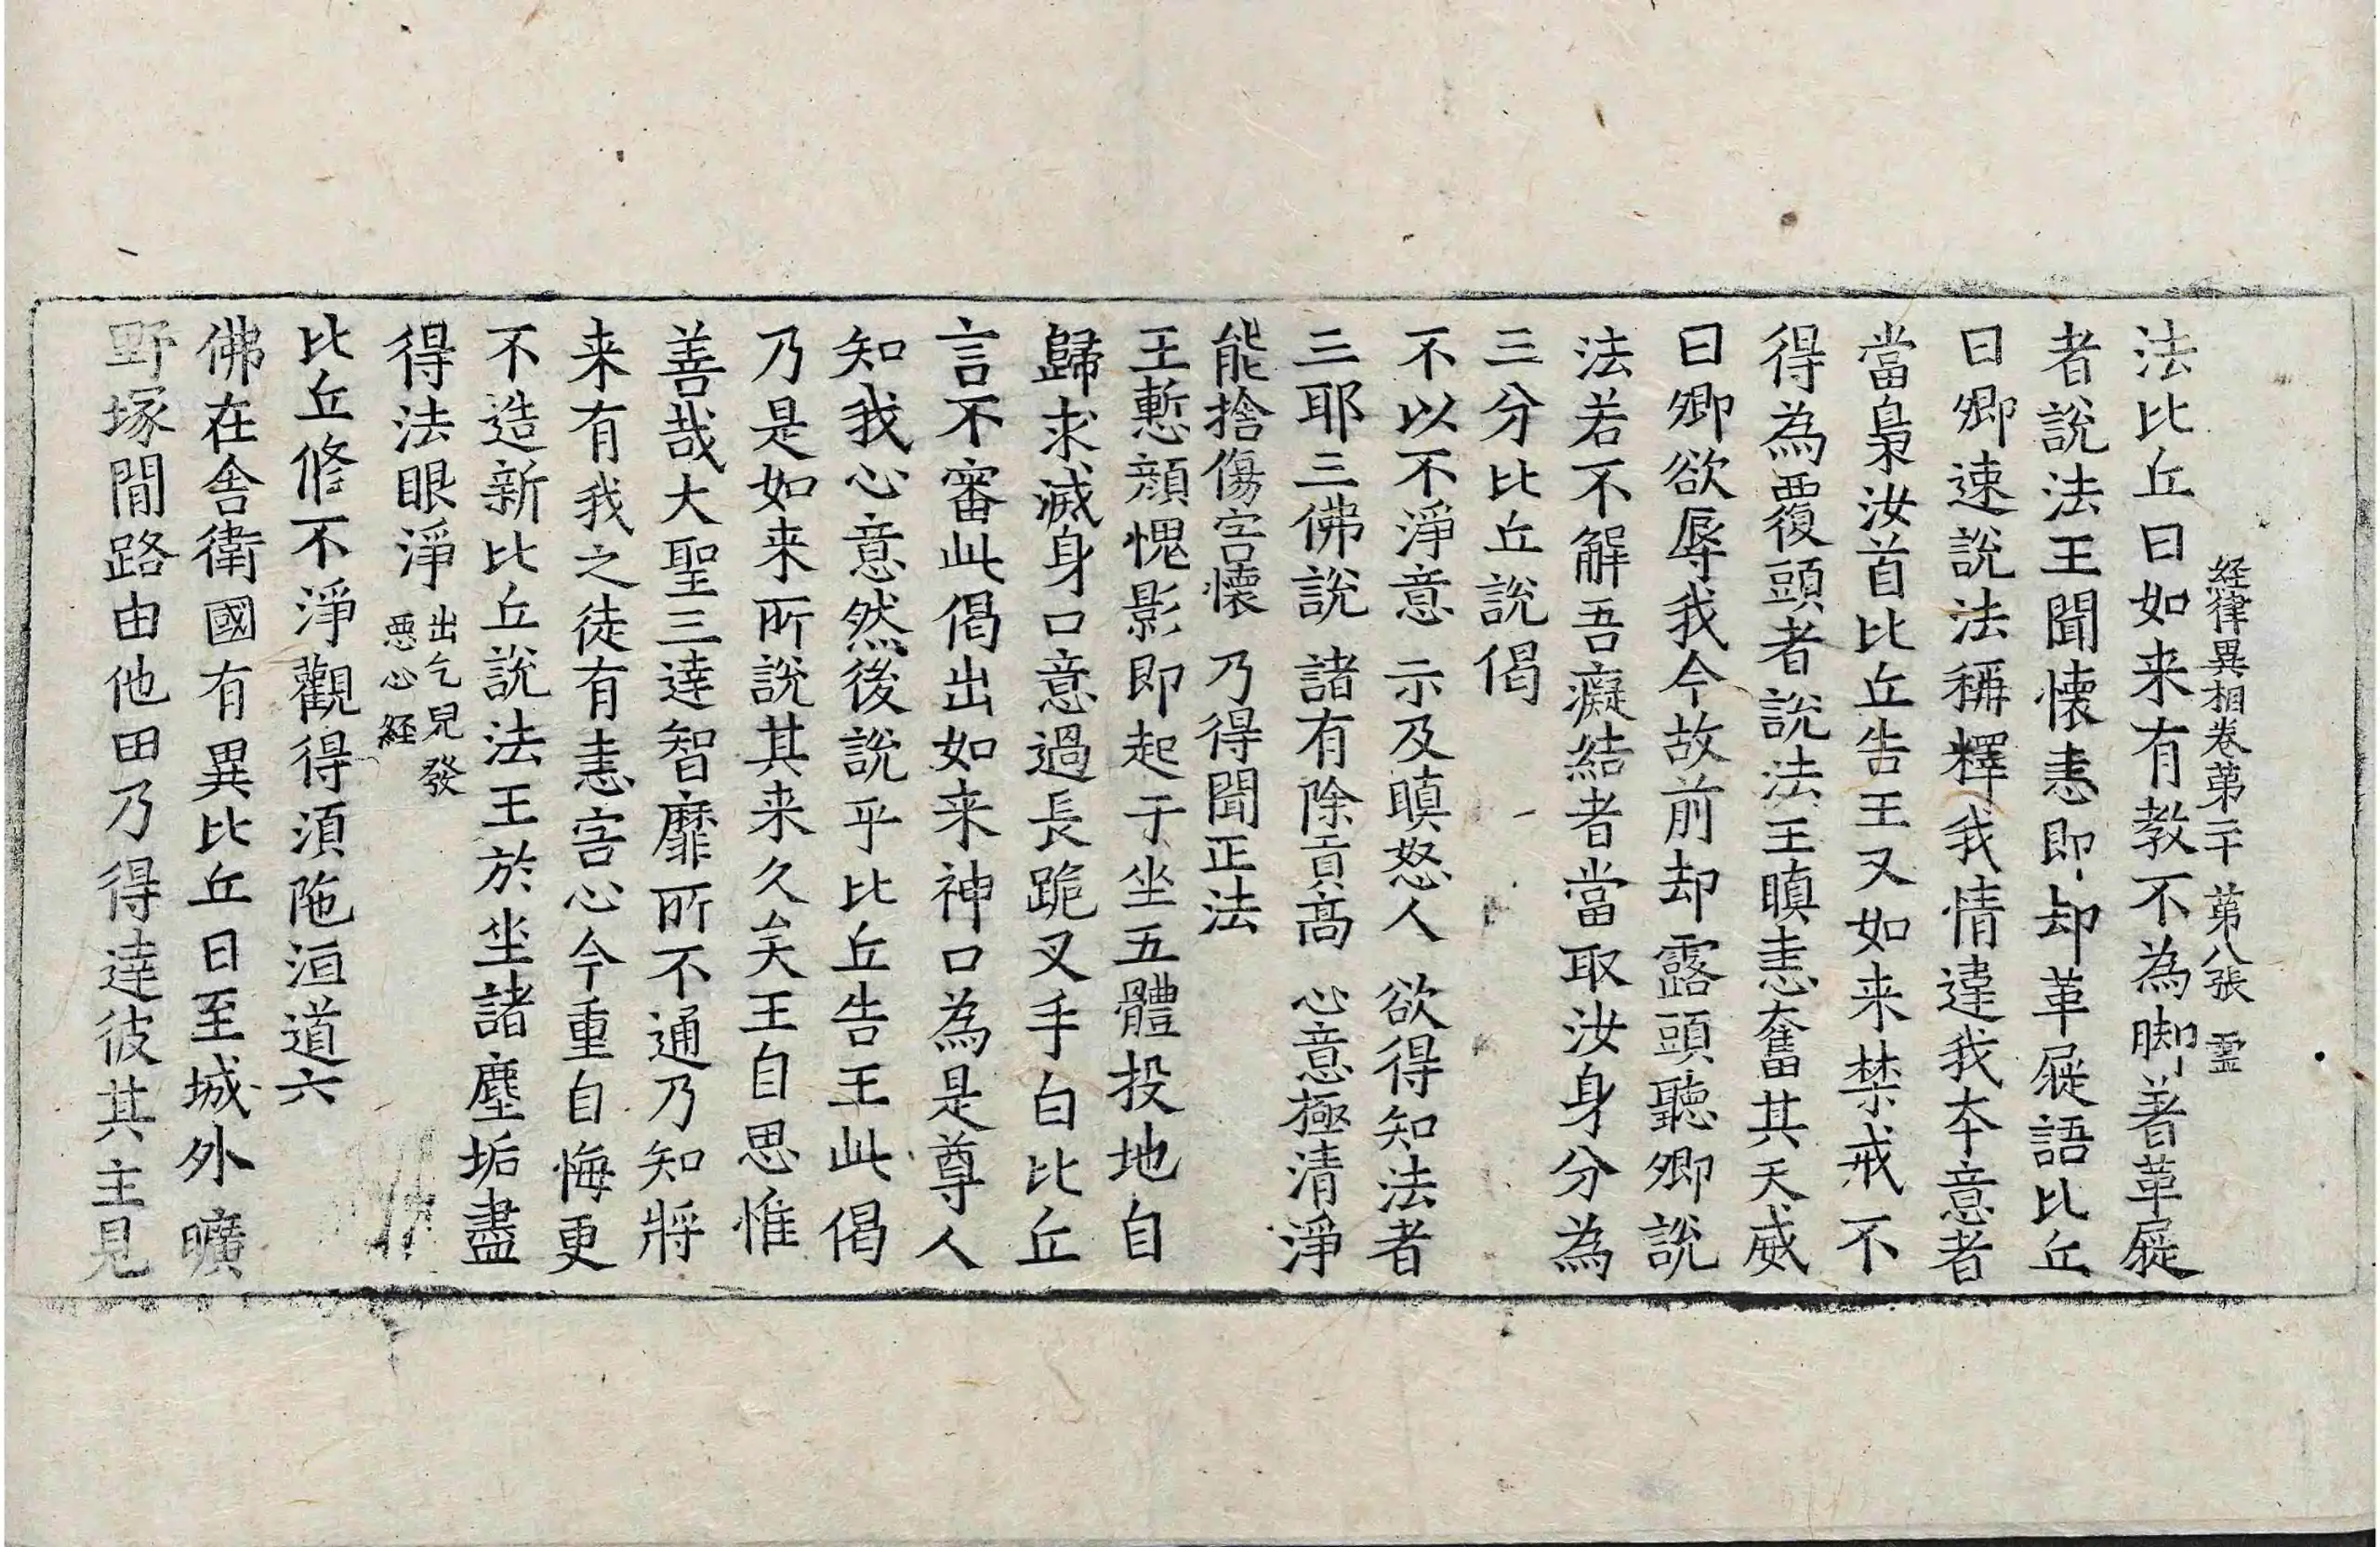 経律異相卷第二十 第八張 霊
法比丘曰如来有教不為脚著革屣
者說法王聞懷恚即却革屣語比丘
曰卿速說法稱釋我情違我本意者
當梟汝首比丘告王又如来禁戒不
得為覆頭者說法王瞋恚奮其天威
曰卿欲辱我今故前却露頭聽卿說
法若不解吾癡結者當取汝身分為
三分比丘說偈
不以不淨意 示及瞋怒人 欲得知法者
三耶三佛說 諸有除貢高 心意極清淨
能捨傷害懷 乃得聞正法
王慙顏愧影即起于坐五體投地自
歸求滅身口意過長跪叉手白比丘
言不審此偈出如来神口為是尊人
知我心意然後說乎比丘告王此偈
乃是如来所說其来久矣王自思惟
善哉大聖三達智靡所不通乃知將
来有我之徒有恚害心今重自悔更
不造新比丘說法王於坐諸塵垢盡
得法眼淨 出乞兒發
惡心経
比丘修不淨觀得湏陁洹道六
佛在舍衛國有異比丘日至城外曠
野塚間路由他田乃得達彼其主見